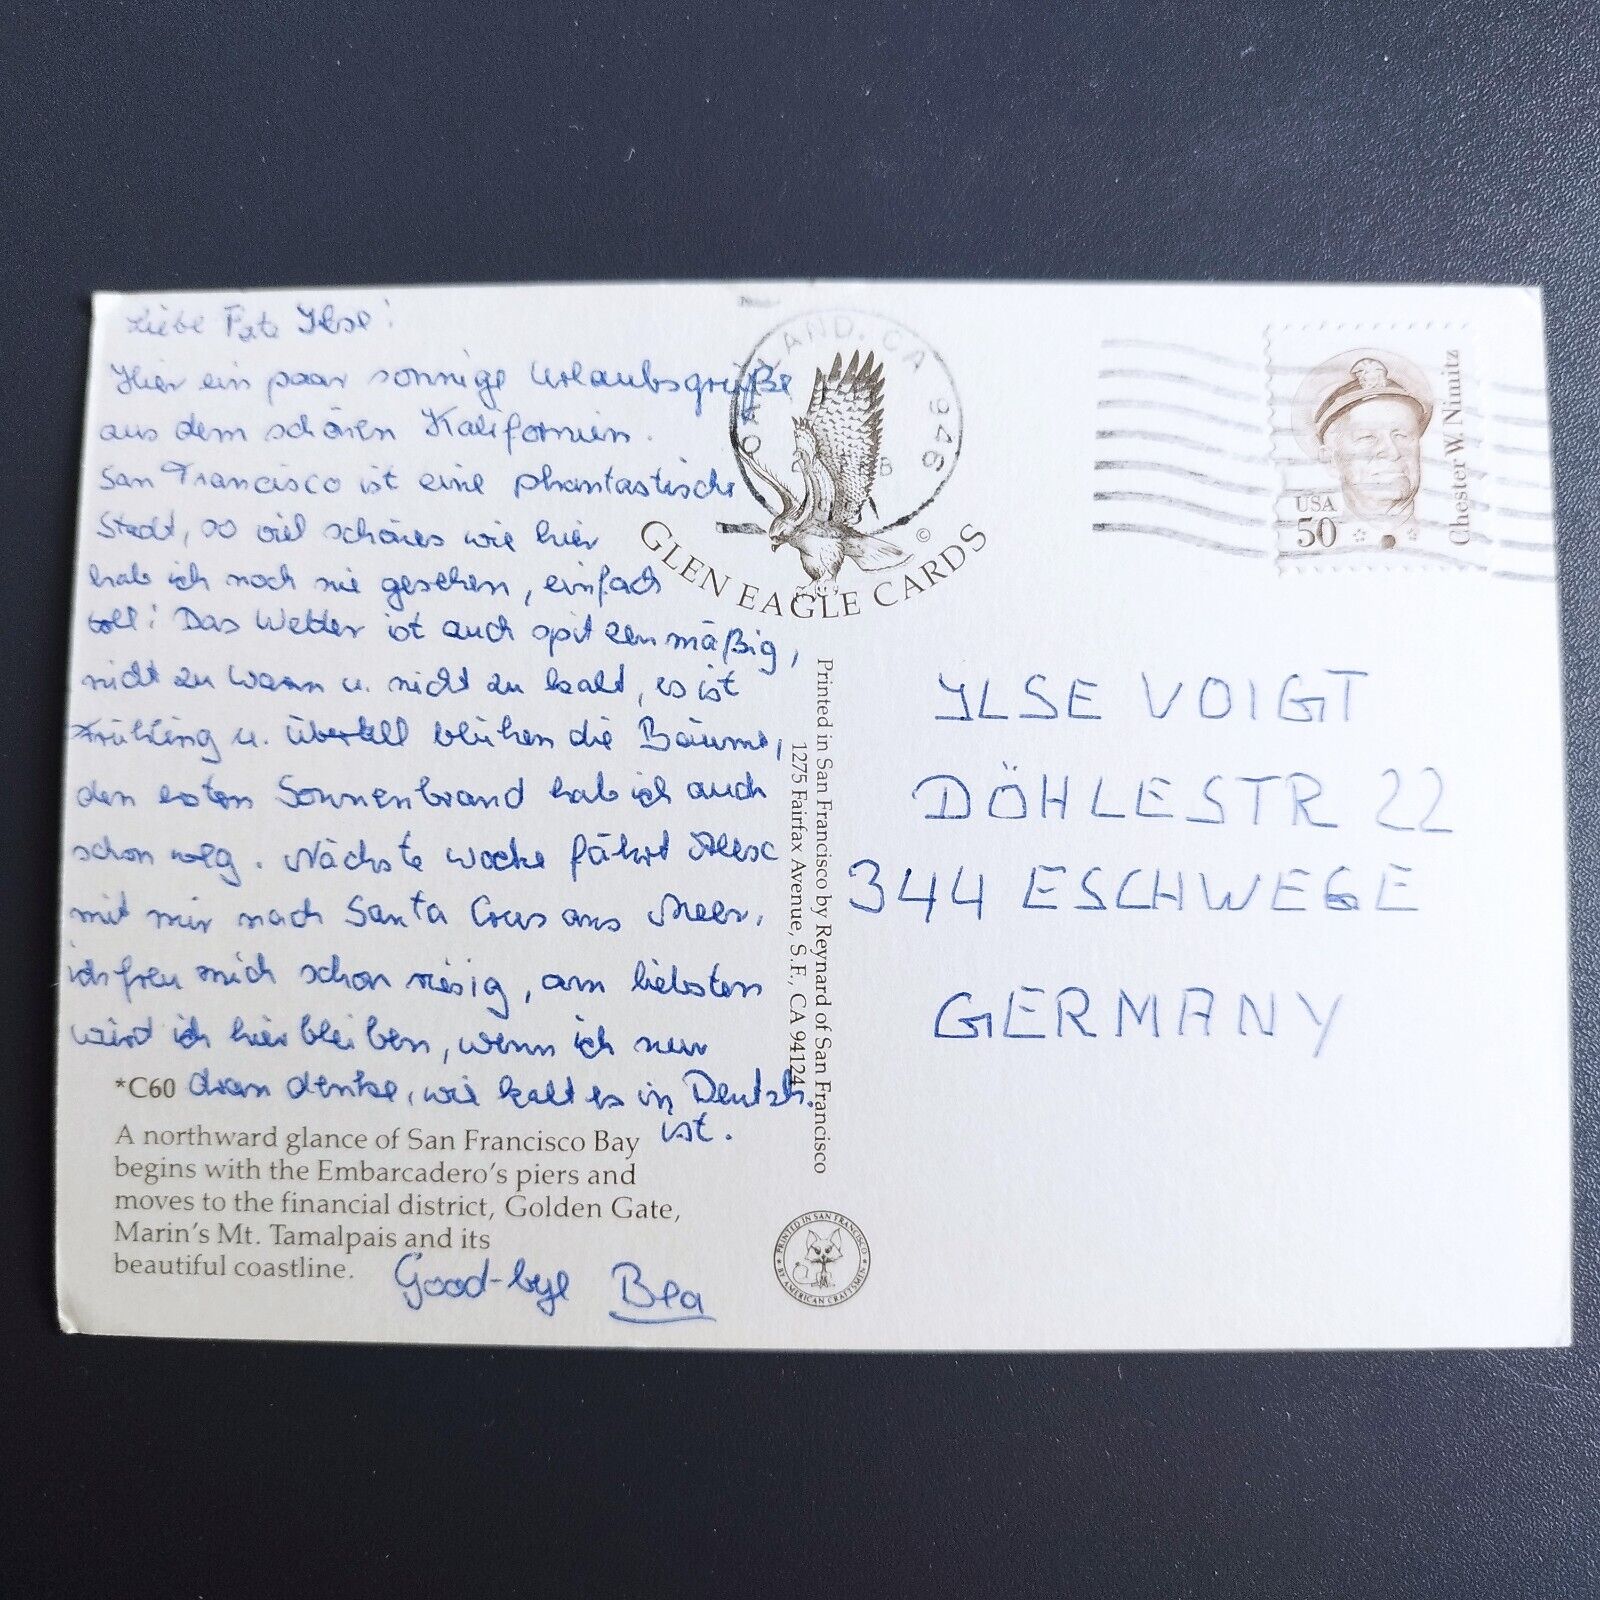 Liebe Ilse!
Hier ein paar sonnige Urlaubsgrüße
aus dem schönen Kalifornien.
San Francisco ist eine phantastische
Stadt, so viel schönes wie hier
hab ich noch nie gesehen, einfach
toll! Das Wetter ist auch spitzenmäßig,
nicht zu warm u. nicht zu kalt, es ist
Frühling u. überall blühen die Bäume,
den ersten Sonnenbrand hab ich auch
schon weg. Nächste Woche fährt Alex
mit mir nach Santa Crus ans Meer,
ich freu mich schon riesig, am liebsten
würd ich hier bleiben, wenn ich nur
dran denke, wie kalt es in Deutsch.
ist.
Good-bye Bea
*C60
A northward glance of San Francisco Bay
begins with the Embarcadero's piers and
moves to the financial district, Golden Gate,
Marin's Mt. Tamalpais and its
beautiful coastline.
OAKLAND, CA 946
GLEN EAGLE CARDS
©
Printed in San Francisco by Reynard of San Francisco
1275 Fairfax Avenue, S.F., CA 94124
PRINTED IN SAN FRANCISCO
BY AMERICAN CRAFTSMEN
USA
50
Chester W. Nimitz
ILSE VOIGT
DÖHLESTR 22
344 ESCHWEGE
GERMANY